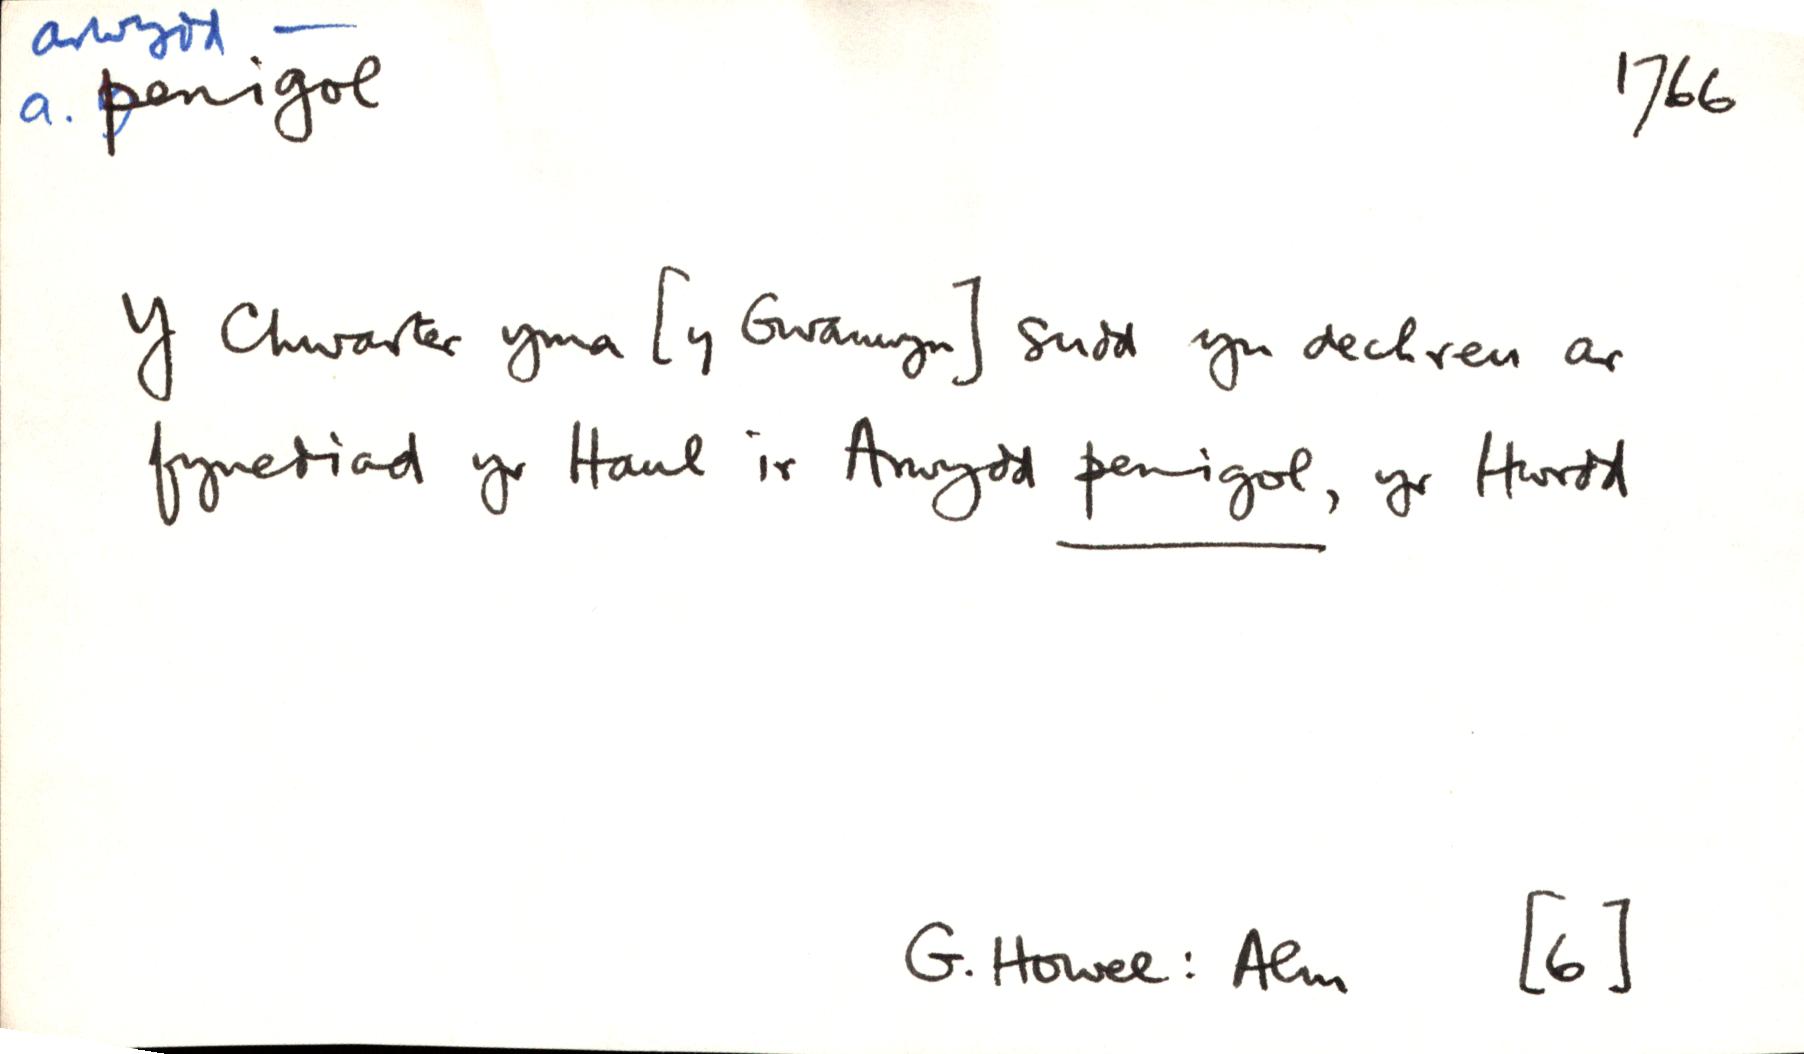 arwydd —
a. penigol
1766
Y Chwarter yma [y Gwanwyn] sudd yn dechreu ar
fynediad yr Haul ir Arwydd penigol, yr Hwrdd
G. Howel: Alm [6]